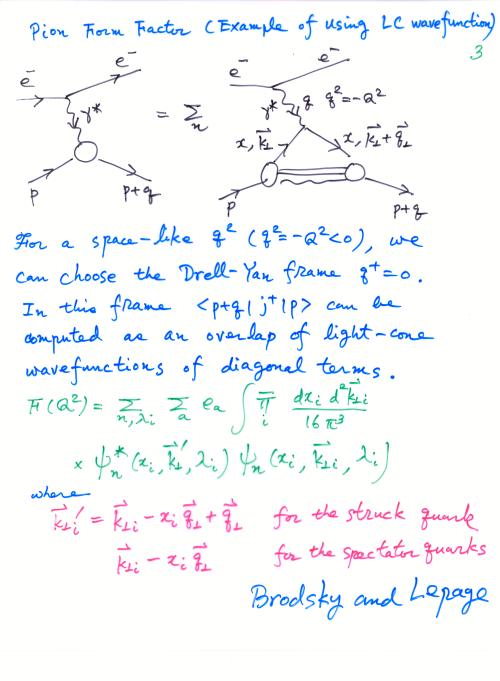 Pion Form Factor (Example of using LC wavefunction)
3
e⁻ e⁻ e⁻ e⁻
γ* = Σ_n γ* q q²=-Q²
x, k⃗⊥ x, k⃗⊥+q⃗⊥
p p+q p p+q
For a space-like q² (q²=-Q²<0), we
can choose the Drell-Yan frame q⁺=0.
In this frame <p+q| j⁺|p> can be
computed as an overlap of light-cone
wavefunctions of diagonal terms.
F(Q²) = Σ_{n,λi} Σ_a e_a ∫ Π_i dx_i d²k⃗⊥i / 16π³
× ψ_n*(x_i, k⃗⊥i', λ_i) ψ_n(x_i, k⃗⊥i, λ_i)
where
k⃗⊥i' = k⃗⊥i - x_i q⃗⊥ + q⃗⊥ for the struck quark
k⃗⊥i - x_i q⃗⊥ for the spectator quarks
Brodsky and Lepage